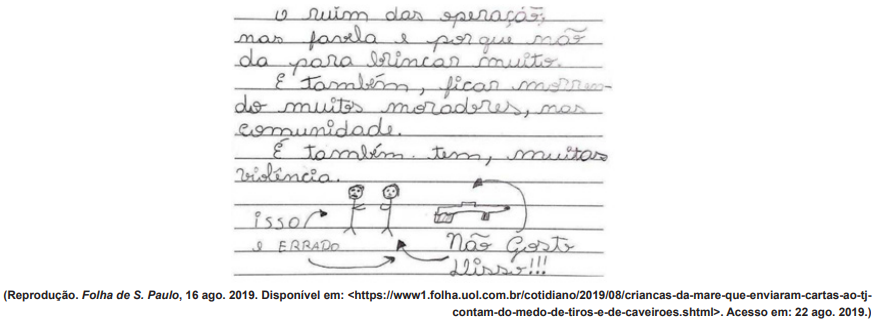 O ruim das operação,
nas favela e porque não
da para brincar muito.
E também, ficar morren-
do muitos moradores, nas
comunidade.
É também tem, muitas
violência.
isso
e ERRADO
Não Gosto
disso!!!
(Reprodução. Folha de S. Paulo, 16 ago. 2019. Disponível em: <https://www1.folha.uol.com.br/cotidiano/2019/08/criancas-da-mare-que-enviaram-cartas-ao-tj-
contam-do-medo-de-tiros-e-de-caveiroes.shtml>. Acesso em: 22 ago. 2019.)